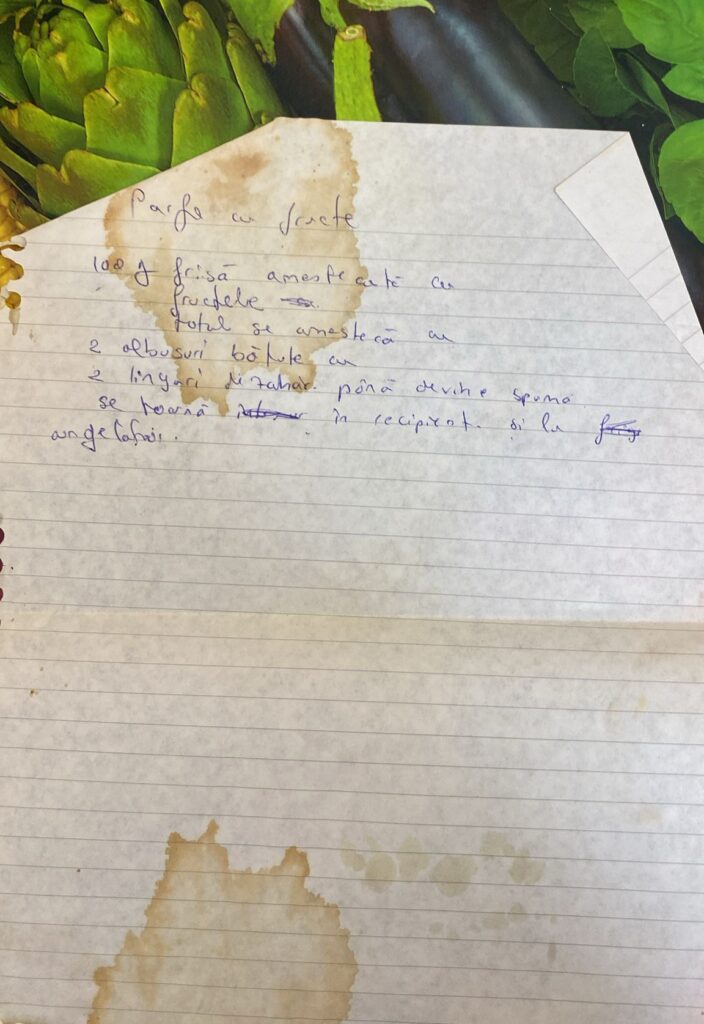 Parfe cu fructe
100 g frișă amestecată cu
fructele
totul se amestecă cu
2 albusuri bătute cu
2 linguri de zahăr până devine spumă
se toarnă în recipient și la